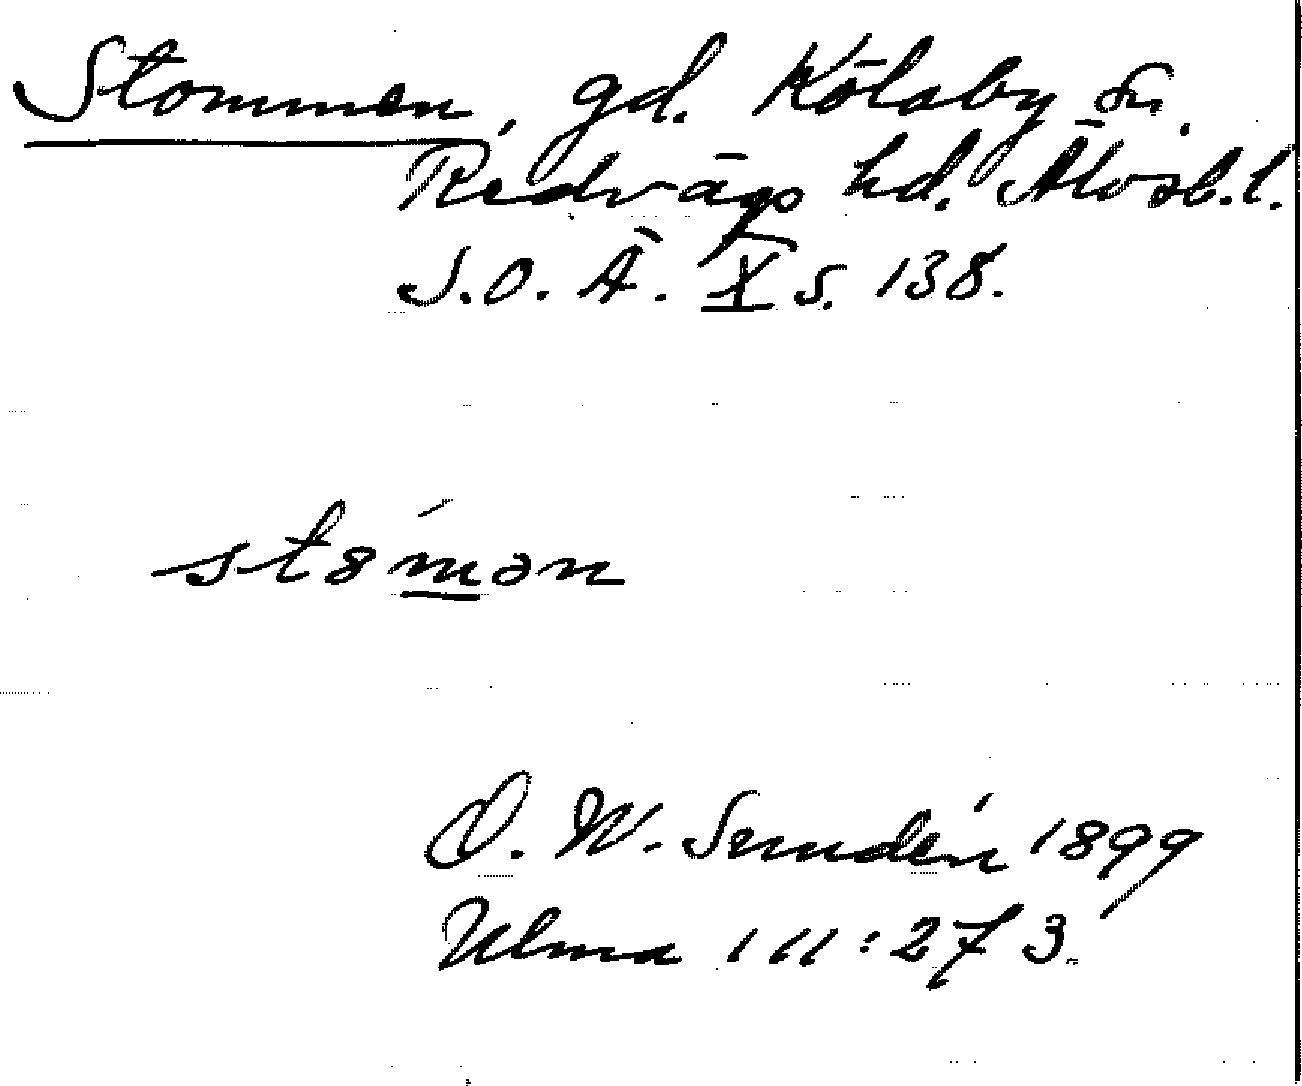 Stommen, gd. Kölaby sn.
Redvägs hd. Älvsb. l.
S.O. Ä. X s. 138.
st8mən
O. W. Sundén 1899
Ulma 111:273